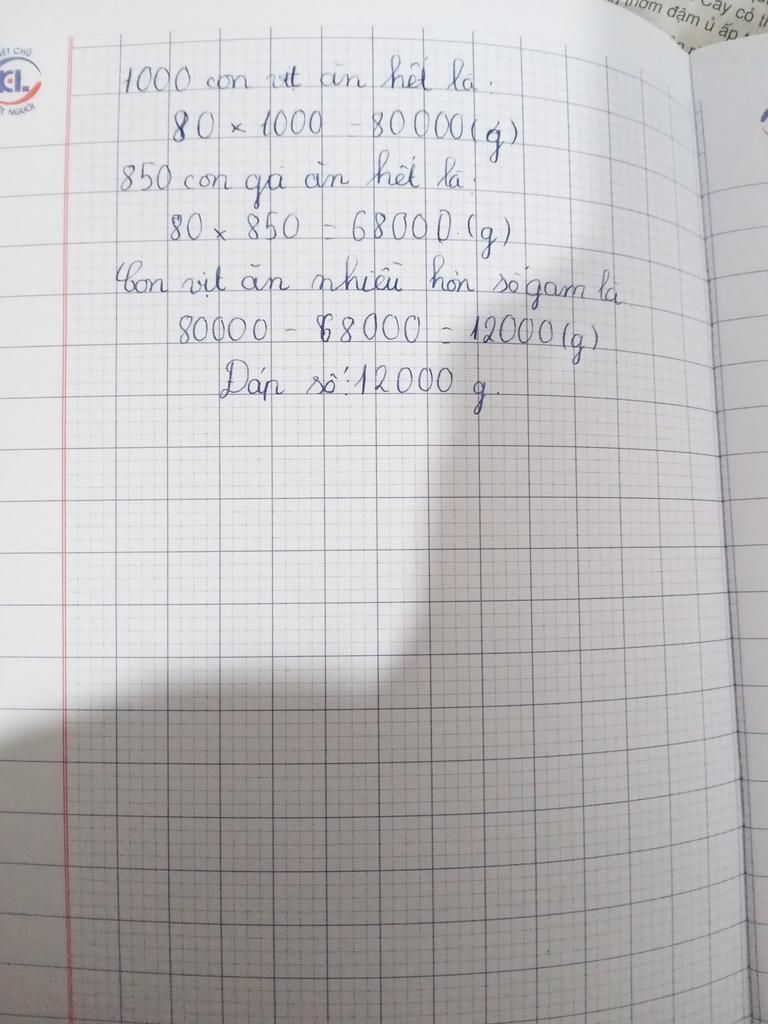 Cây cỏ th
thơm đậm ủ ấp
ẾT CHỮ
KL
ẾT NGƯỜI
1000 con vịt ăn hết là:
80 x 1000 = 80000 (g)
850 con gà ăn hết là:
80 x 850 = 68000 (g)
Con vịt ăn nhiều hơn số gam là
80000 - 68000 = 12000 (g)
Đáp số: 12000 g.